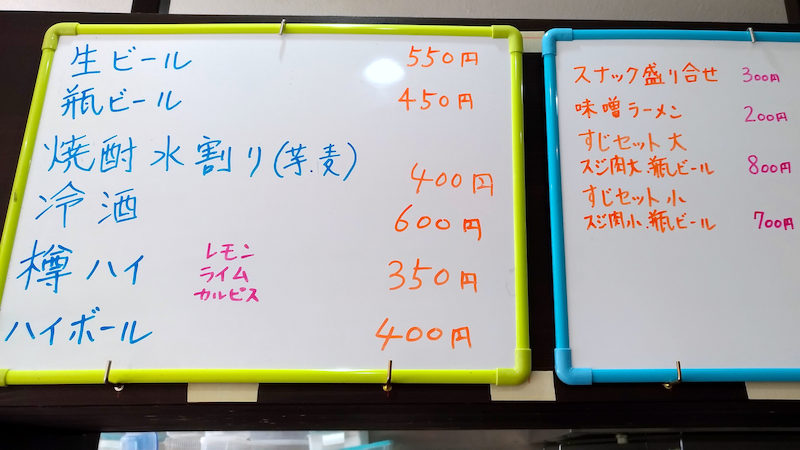 生ビール 550円
瓶ビール 450円
焼酎水割り(芋.麦) 400円
冷酒 600円
樽ハイ レモン ライム カルピス 350円
ハイボール 400円
スナック盛り合せ 300円
味噌ラーメン 200円
すじセット大
スジ肉大.瓶ビール 800円
すじセット小
スジ肉小.瓶ビール 700円